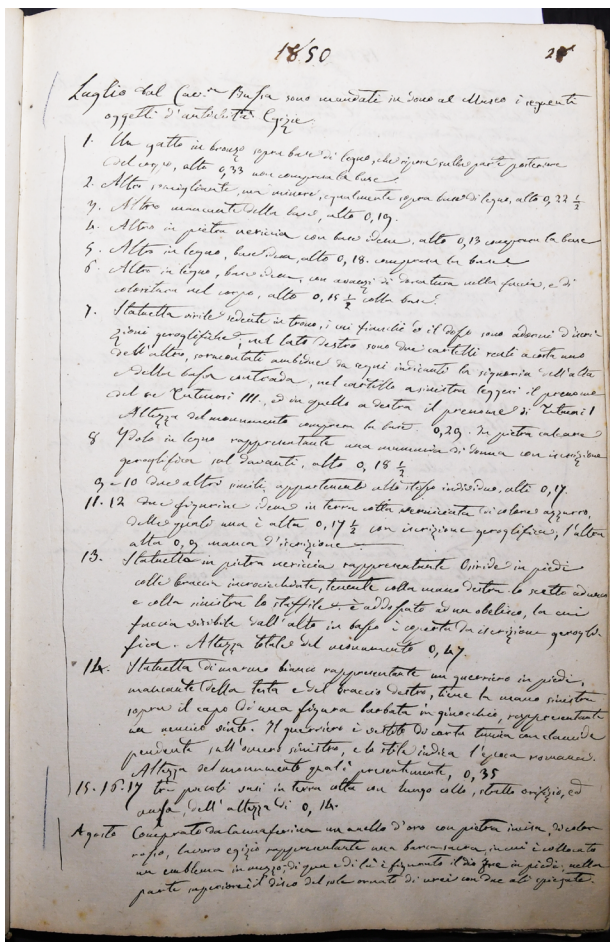 1850
Luglio dal Cav.re Bussa sono mandati in dono al Museo i seguenti
oggetti d'antichità Egizie
1. Un gatto in bronzo sopra base di legno, che riposa sulla parte posteriore
del corpo, alto 0,33 non compresa la base
2. Altro somigliante, ma minore, egualmente sopra base di legno, alto 0,22 ½
3. Altro mancante della base, alto 0,19.
4. Altro in pietra nericcia con base idem, alto 0,13 compresa la base
5. Altro in legno, base idem, alto 0,18. compresa la base
6. Altro in legno, base idem, con avanzi di doratura nella faccia, e di
coloritura nel corpo, alto 0,15 ½ colla base.
7. Statuetta virile sedente in trono, i cui fianchi e il dosso sono adorni d'iscri-
zioni geroglifiche, nel lato destro sono due cartelli reali accosto uno
dell'altro, sormontati ambidue da segni indicanti la signoria dell'alta
e della bassa contrada, nel cartello a sinistra leggesi il prenome
del re Tutmosi III. ed in quello a destra il prenome di Tutmosi I
Altezza del monumento compresa la base 0,29. In pietra calcare
8 Idolo in legno rappresentante una mummia di donna con iscrizione
geroglifica sul davanti, alto 0,18 ½
9 e 10 due altri simili, appartenenti allo stesso individuo, alti 0,17.
11. 12 due figurine idem in terra cotta verniciata di colore azzurro,
delle quali una è alta 0,17 ½ con iscrizione geroglifica, l'altra
alta 0,09 manca d'iscrizione
13. Statuetta in pietra nericcia rappresentante Osiride in piedi
colle braccia incrocicchiate, tenente colla mano destra lo scettro adunco
e colla sinistra lo staffile è addossato ad un obelisco, la cui
faccia visibile dall'alto in basso è coperta da iscrizione gerogli-
fica. Altezza totale del monumento 0,47
14. Statuetta di marmo bianco rappresentante un guerriero in piedi,
mancante della testa e del braccio destro, tiene la mano sinistra
sopra il capo di una figura barbata in ginocchio, rappresentante
un nemico vinto. Il guerriero è vestito di corta tunica con clamide
pendente sull'omero sinistro, e lo stile indica l'epoca romana.
Altezza del monumento qual è presentemente, 0,35
15. 16. 17 tre piccoli vasi in terra cotta con lungo collo, stretto orifizio, ed
ansa, dell'altezza di 0,14.
Agosto Comprato da un anello d'oro con pietra incisa, di color
rosso, lavoro egizio rappresentante una barca sacra, in cui è collocato
un emblema in mezzo; di qua e di là è figurato il dio Fre in piedi, nella
parte superiore il disco del sole ornato di urei con due ali spiegate.